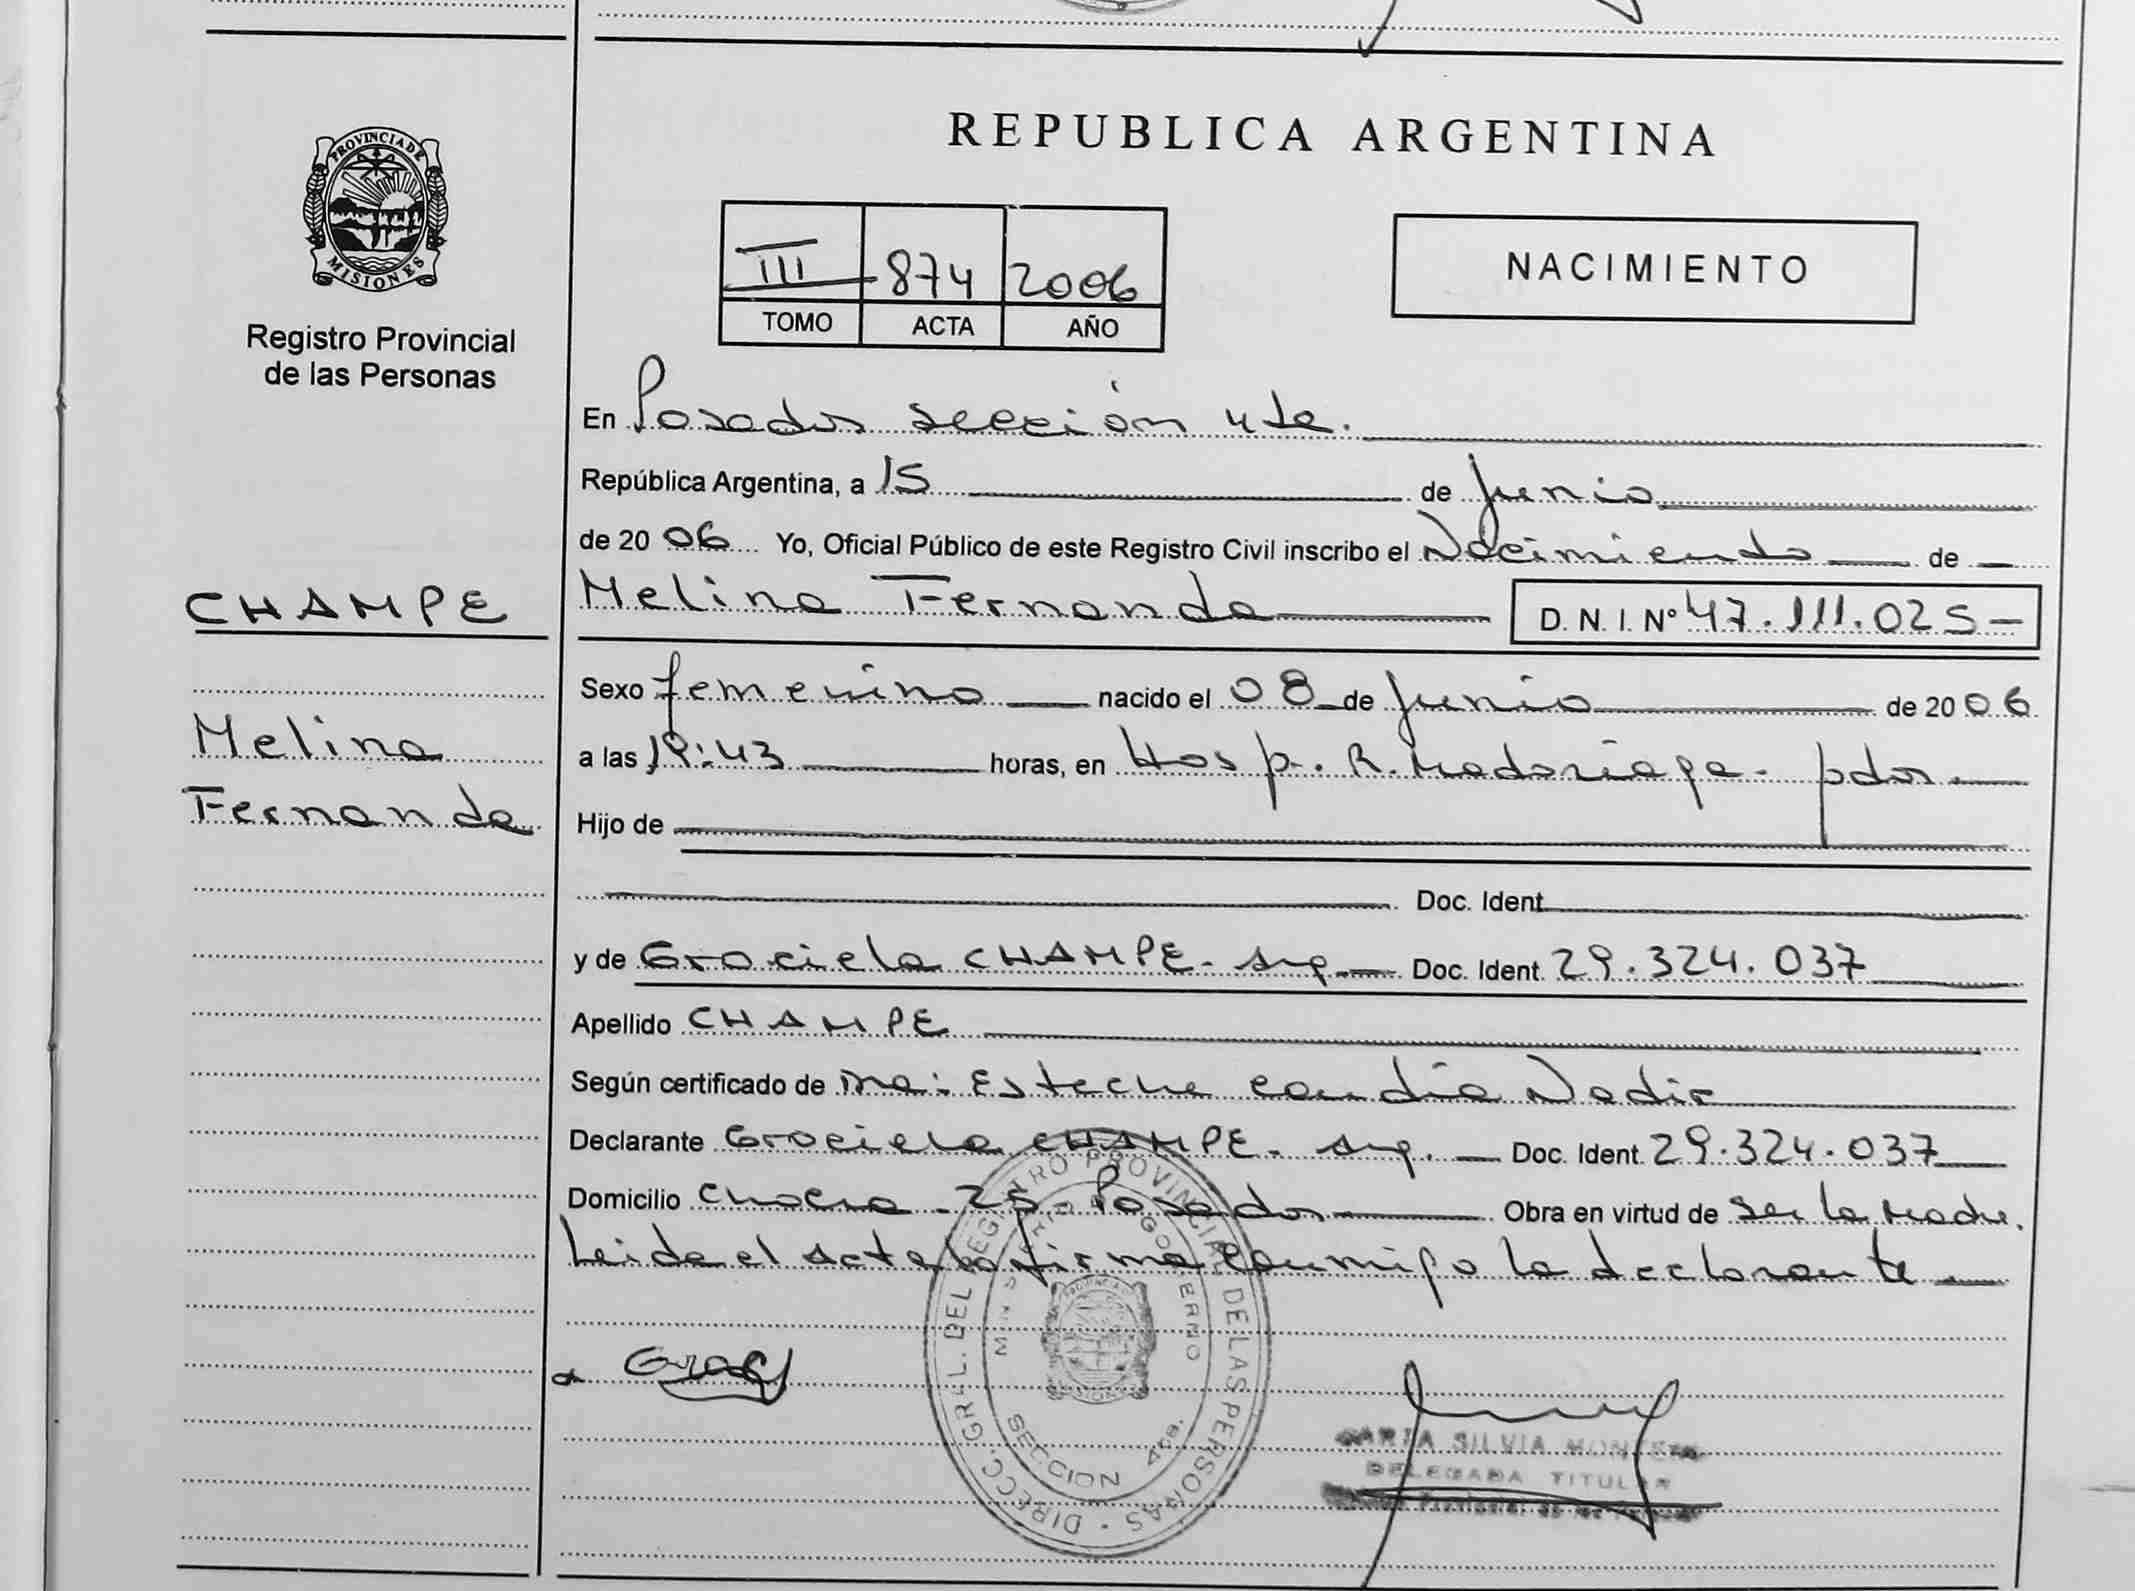 PROVINCIA DE
MISIONES
Registro Provincial
de las Personas
CHAMPE
Melina
Fernanda
REPUBLICA ARGENTINA
III 874 2006
TOMO ACTA AÑO
NACIMIENTO
En Posadas sección 4ta.
República Argentina, a 15 de Junio
de 2006 Yo, Oficial Público de este Registro Civil inscribo el Nacimiento de
Melina Fernanda D. N. I. Nº 47.111.025-
Sexo femenino nacido el 08 de Junio de 2006
a las 19:43 horas, en Hosp. R. Madariaga. pdas
Hijo de
Doc. Ident.
y de Graciela CHAMPE. arg. Doc. Ident. 29.324.037
Apellido CHAMPE
Según certificado de Esteche Nadir
Declarante Graciela CHAMPE. arg. Doc. Ident. 29.324.037
Domicilio Chacra 25 Posadas Obra en virtud de ser la madre.
Leida el acta la firma conmigo la declarante
DIRECC. GRAL. DEL REGISTRO PROVINCIAL DE LAS PERSONAS
MINISTERIO DE GOBIERNO
SECCION 4ta.
MARIA SILVIA
DELEGADA TITULAR